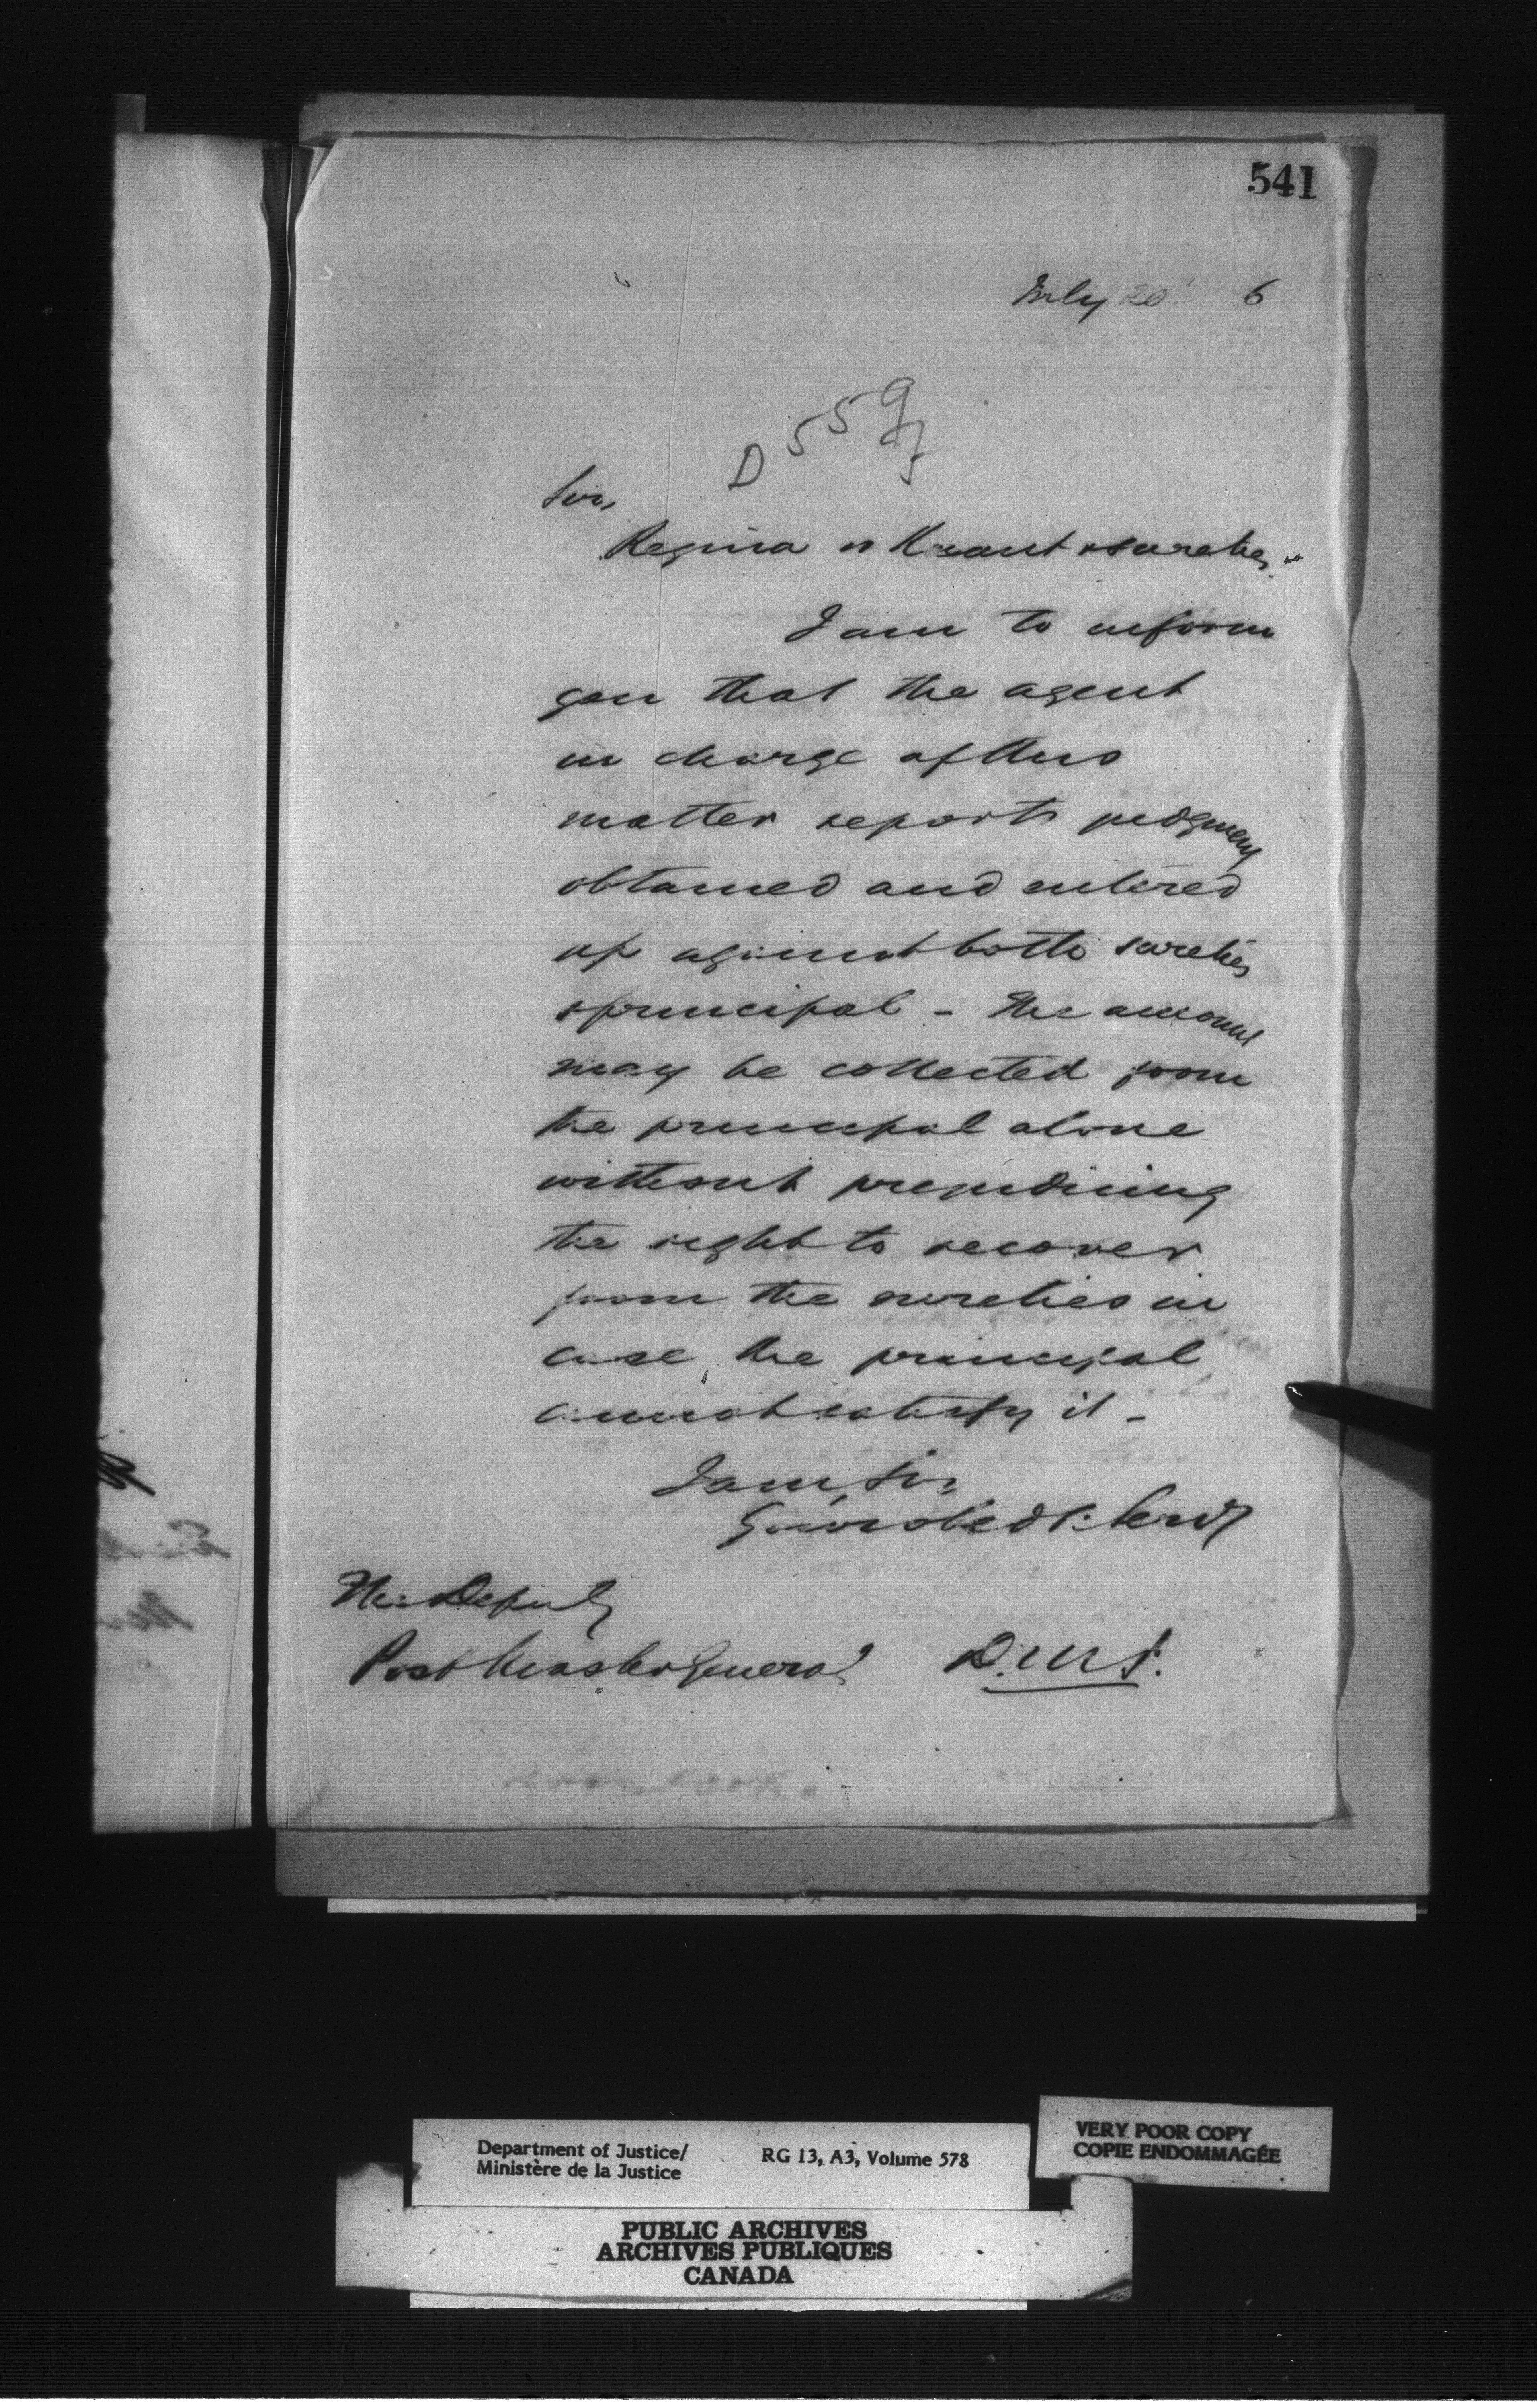 541
July 20 6
D 559
Sir,
Regina vs Kraut & sureties.
I am to inform
you that the agent
in charge of this
matter reports judgment
obtained and entered
up against both sureties
& principal - The amount
may be collected from
the principal alone
without prejudicing
the right to recover
from the sureties in
case the principal
cannot satisfy it -
I am, Sir,
Your obed't Serv't
The Deputy
Post Master General
D.M.J.
Department of Justice/
Ministère de la Justice
RG 13, A3, Volume 578
VERY POOR COPY
COPIE ENDOMMAGÉE
PUBLIC ARCHIVES
ARCHIVES PUBLIQUES
CANADA